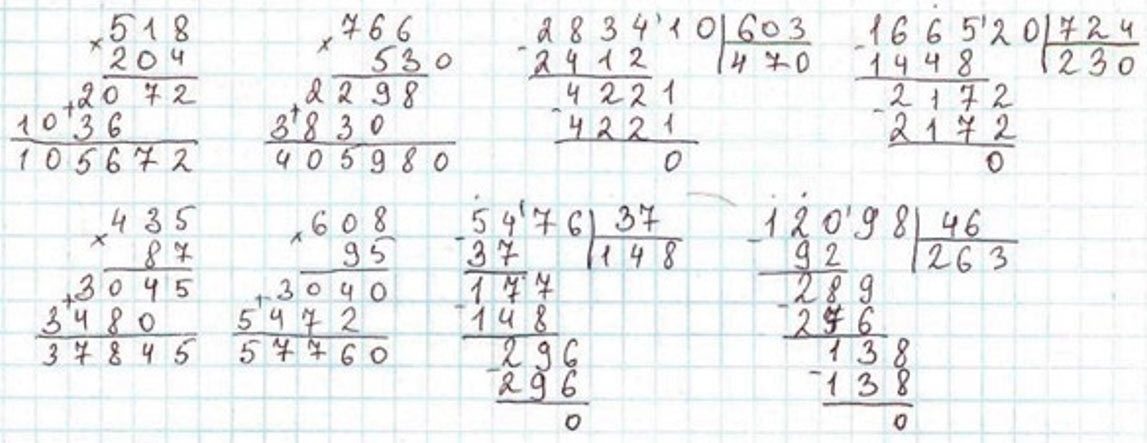 518
× 204
+ 2072
1036
105672
766
× 530
+ 2298
3830
405980
283410 | 603
- 2412 | 470
4221
- 4221
0
166520 | 724
- 1448 | 230
2172
- 2172
0
435
× 87
+ 3045
3480
37845
608
× 95
+ 3040
5472
57760
5476 | 37
- 37 | 148
177
- 148
296
- 296
0
12098 | 46
- 92 | 263
289
- 276
138
- 138
0